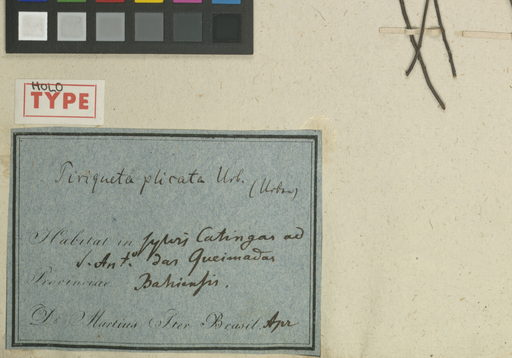 HOLO
TYPE
Piriqueta plicata Urb.
(Urban)
Habitat in sylvis Catingas ad
S. Ant.º das Queimadas
Provinciae Bahiensis.
Dr Martius Iter Brasil. Apr